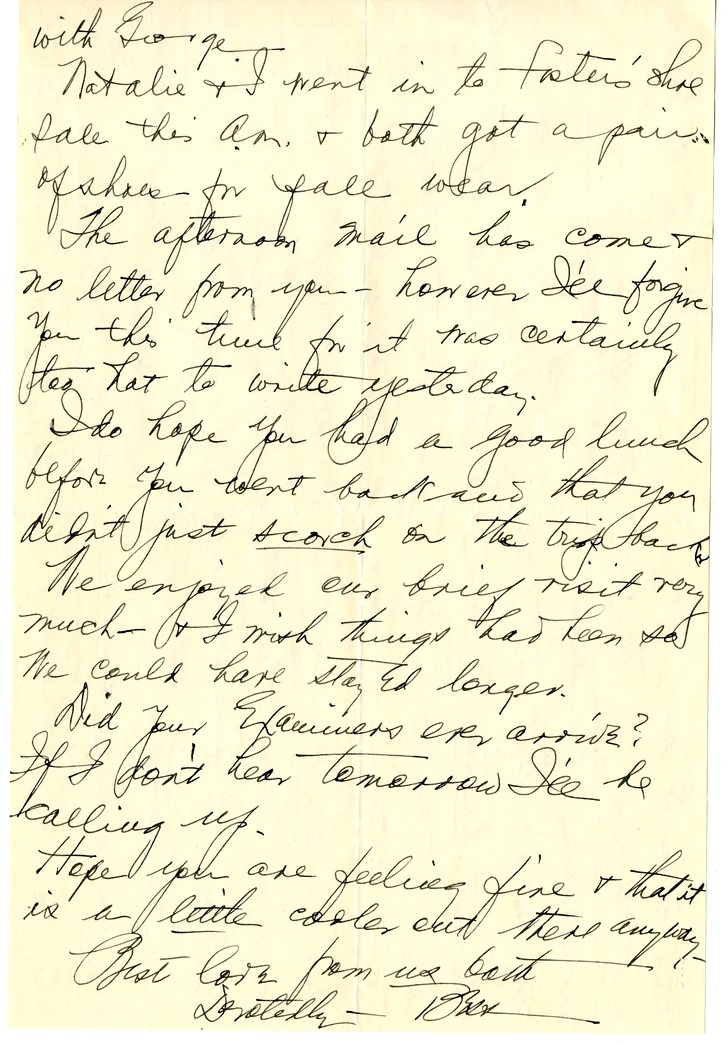 with George
Natalie & I went in to Foster's shoe
sale this A.m. & both got a pair
of shoes for fall wear.
The afternoon mail has come &
no letter from you - however I'll forgive
you this time for it was certainly
too hot to write yesterday.
I do hope you had a good lunch
before you went back and that you
didn't just scorch on the trip back
We enjoyed our brief visit very
much - & I wish things had been so
We could have stayed longer.
Did your Examiners ever arrive?
If I don't hear tomorrow I'll be
calling up.
Hope you are feeling fine & that it
is a little cooler out there anyway -
Best love from us both
Devotedly - Bess